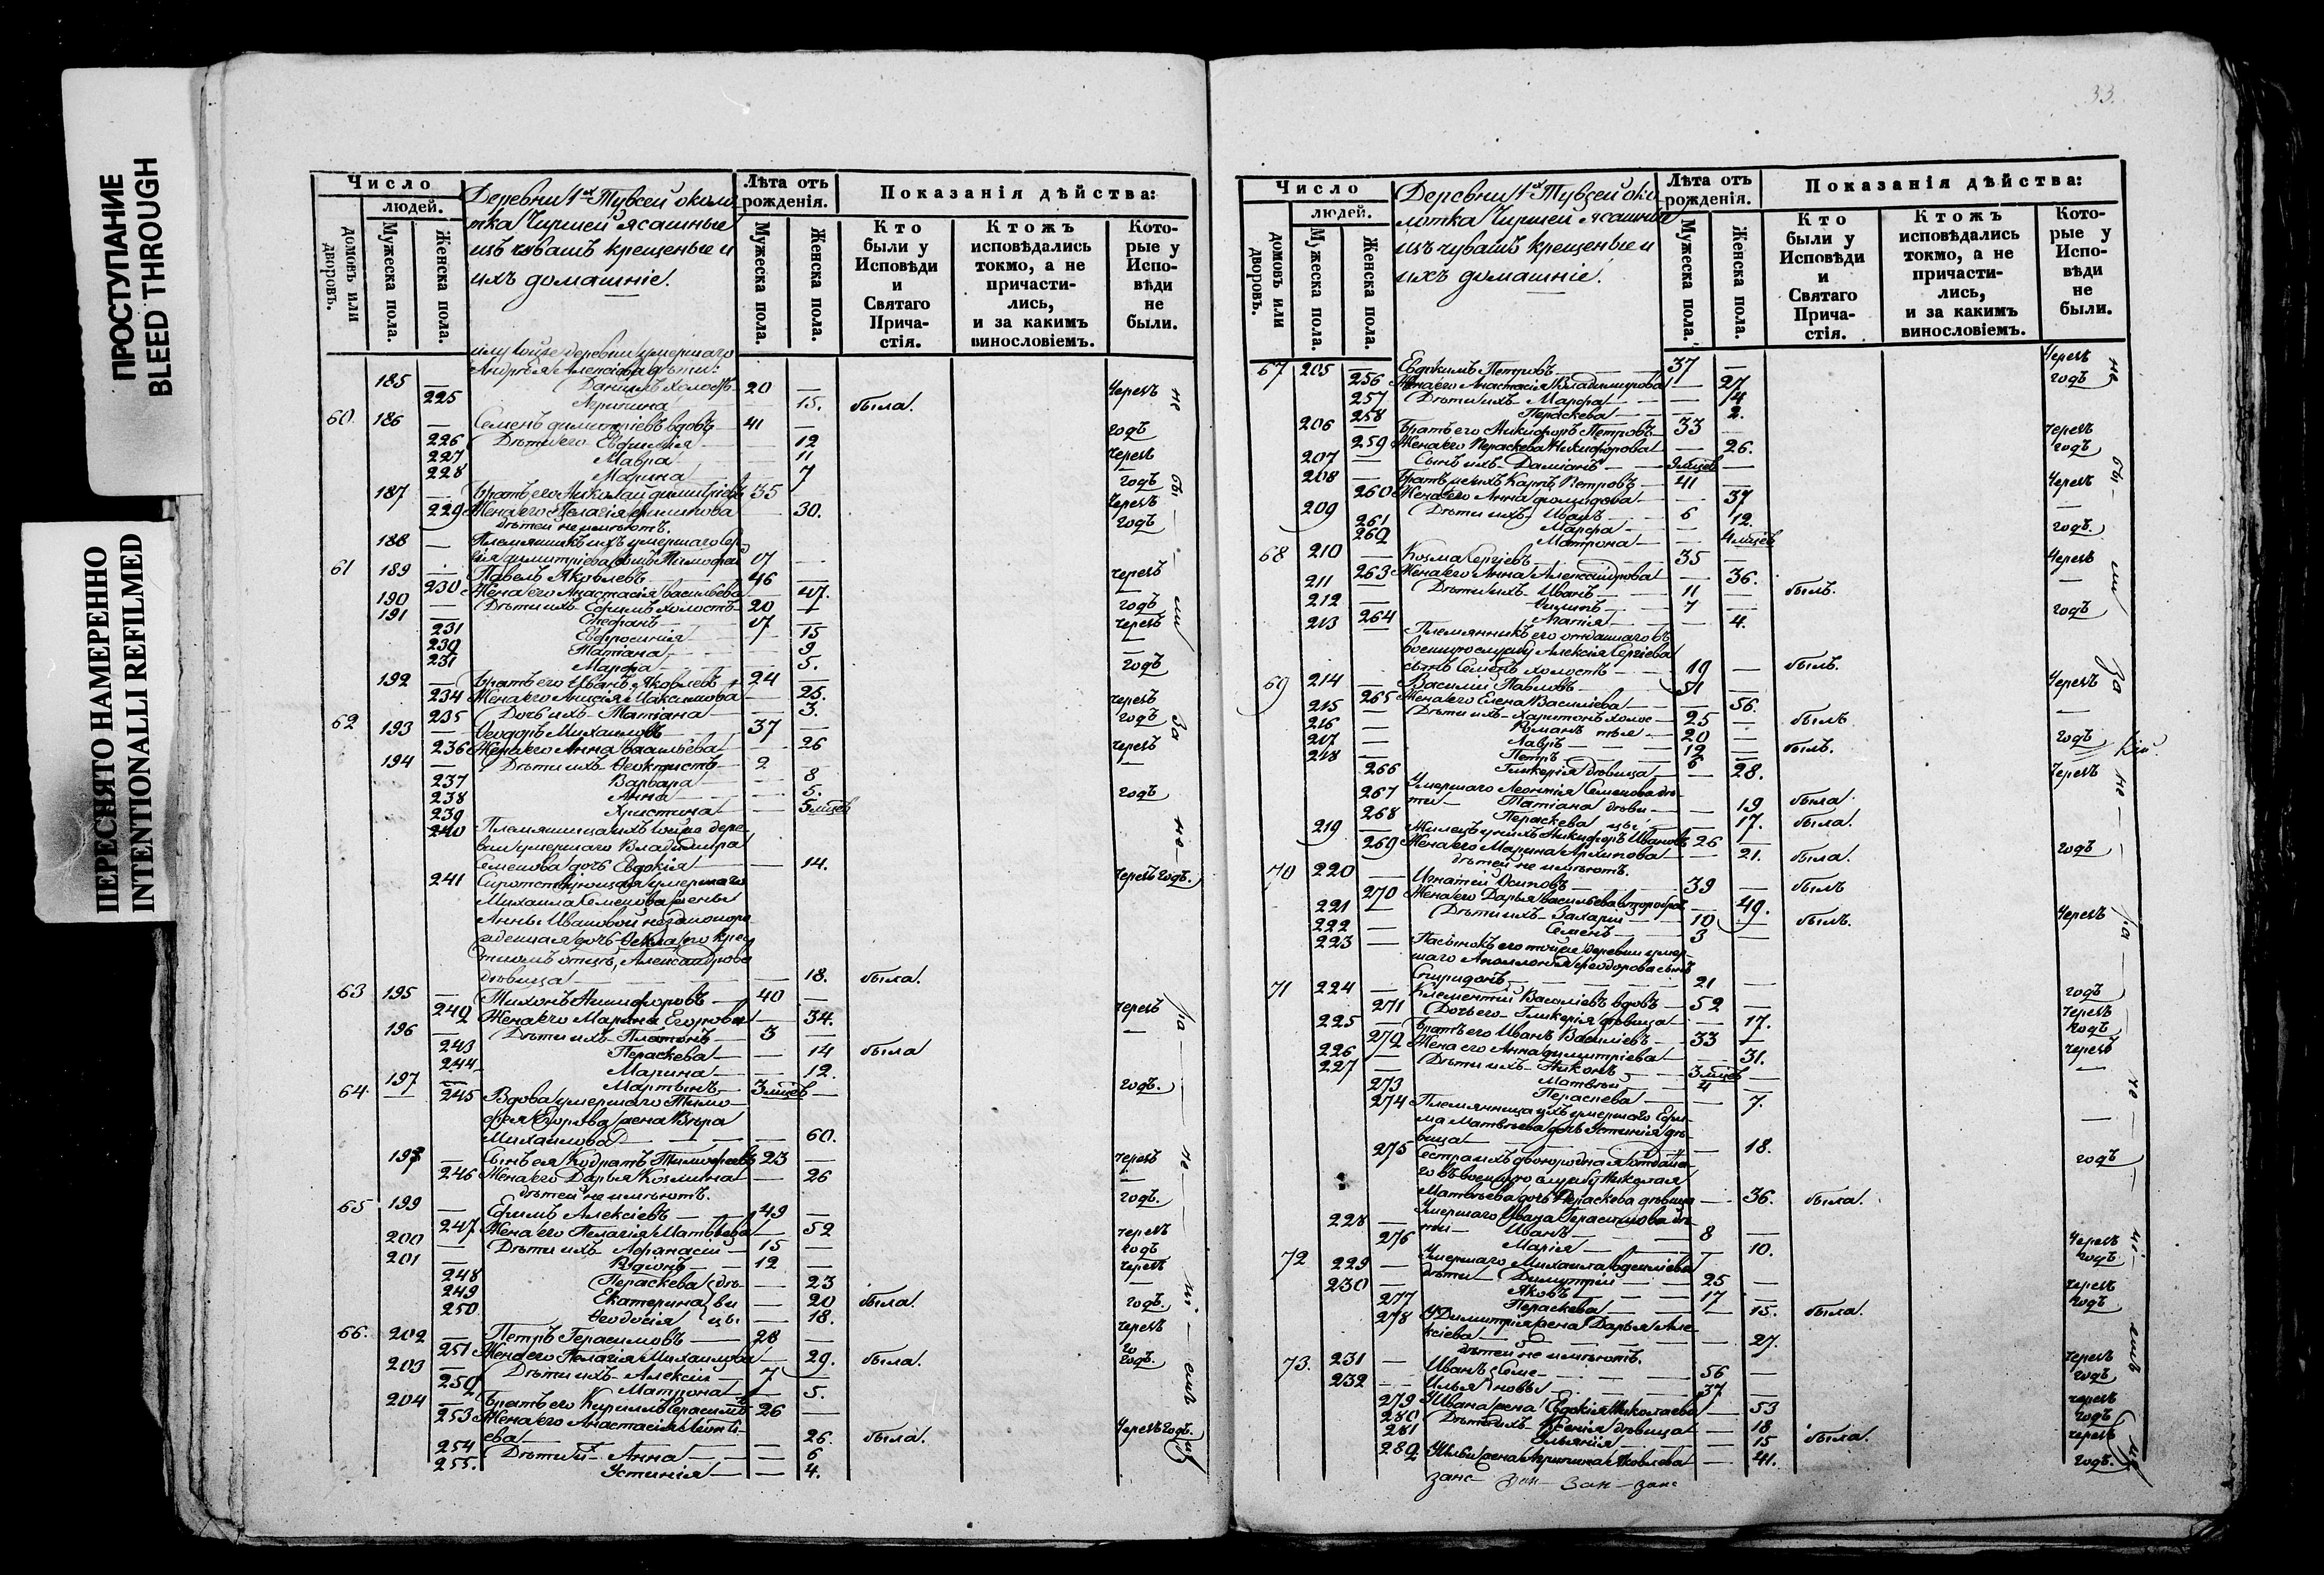 ПРОСТУПАНИЕ
BLEED THROUGH
ПЕРЕСНЯТО НАМЕРЕННО
INTENTIONALLI REFILMED
Число
людей.
домовъ или дворовъ.
Мужеска пола.
Женска пола.
Деревни 1й Тувсей около
тка Чиршей ясашные
изъ чувашъ крещеные и
ихъ домашніе.
Лѣта отъ рожденія.
Мужеска пола.
Женска пола.
Показанія дѣйства:
Кто были у Исповѣди и Святаго Прича-стія.
Ктожъ исповѣдались токмо, а не причасти-лись, и за какимъ винословіемъ.
Кото-рые у Испо-вѣди не были.
умершаго
Андрея Алексѣева дѣти:
185 — Даніилъ холостъ — 20 — черезъ
225 Агрипина 15. была.
60 186 — Семенъ Димитріевъ вдовъ — 41 — годъ
226 Дѣти его Евфимія — 12
227 Мавра — 11 черезъ
228 Марина — 7 годъ
187 — Братъ его Николай Димитріевъ 35 черезъ
229 Жена его Пелагія Филипова 30. годъ
дѣтей не имѣютъ.
188 — Племянникъ ихъ умершаго Сер
гія Димитріева сынъ Тимофей 17
61 189 Павелъ Яковлевъ — 46 — черезъ
230 Жена его Анастасія Васильева — 47.
190 — Дѣти ихъ Ефимъ холостъ 20 — годъ
191 — Стефанъ — 17 черезъ
231 Евфросинія — 15
232 Татіана — 9
231 Марфа — 5. годъ
192 — Братъ его Иванъ Яковлевъ 24 —
234 Жена его Анисія Максимова — 25. черезъ
235 Дочь ихъ Татіана — 3. годъ
62 193 — Ѳеодоръ Михаиловъ — 37 —
236 Жена его Анна Васильева — 26 черезъ
194 — Дѣти ихъ Ѳеоктистъ — 2 —
237 Варвара — 8
238 Анна — 5. годъ
239 Христина — 5 мѣсев
240 Племянница ихъ тойже дере
вни умершаго Владимира
Семенова дочь Евдокія — 14.
241 Сиротствующая умершаго черезъ годъ.
Михаила Семенова жены
Анны Ивановой незаконоро
жденная дочь Ѳекла по крес
тномъ отцѣ, Александрова
дѣвица — 18. была.
63 195 — Тихонъ Никифоровъ — 40 —
242 Жена его Марина Егорова — 34. черезъ
196 — Дѣти ихъ Платонъ — 3 —
243 Пераскева — 14 была
244 Марина — 12.
197 — Мартынъ — 3 мѣсев — годъ.
64 — 245 Вдова умершаго Тимо
фея Егорова жена Вѣра
Михаилова — 60.
198 — Сынъ ея Кодратъ Тимофеевъ 23 — черезъ
246 Жена его Дарья Козмина — 26
дѣтей не имѣютъ. годъ.
65 199 — Ефимъ Алексіевъ — 49 —
247 Жена его Пелагія Матвѣева — 52 черезъ
200 — Дѣти ихъ Афанасій — 15 — годъ
201 — Родіонъ — 12 — черезъ
248 Пераскева дѣ — 23
249 Екатерина ви — 20 была. годъ.
250 Ѳеодосія цы — 18.
66. 202 — Петръ Герасимовъ — 28 — черезъ
251 Жена его Пелагія Михаилова — 29. была. годъ.
203 — Дѣти ихъ Алексій — 7 —
252 Матрона — 5.
204 — Братъ его Кириллъ Герасимовъ 26 —
253 Жена его Анастасія Леонті
ева — 26. была. черезъ годъ.
254 Дѣти ихъ Анна — 6
255. Устинія — 4.
33.
Число
людей.
домовъ или дворовъ.
Мужеска пола.
Женска пола.
Деревни 1й Тувзей око
лотка Чиршей ясашные
изъ чувашъ крещеные и
ихъ домашніе.
Лѣта отъ рожденія.
Мужеска пола.
Женска пола.
Показанія дѣйства:
Кто были у Исповѣди и Святаго Прича-стія.
Ктожъ исповѣдались токмо, а не причасти-лись, и за какимъ винословіемъ.
Кото-рые у Испо-вѣди не были.
67 205 — Евфимъ Петровъ — 37 — черезъ
256 Жена его Анастасія Владимирова — 27 годъ
257 Дѣти ихъ Марфа — 4
258 Пераскева — 2.
206 — Братъ его Никифоръ Петровъ 33 — черезъ
259 Жена его Пераскева Никифорова — 26. годъ
207 — Сынъ ихъ Даміанъ — 9 мѣсев —
208 — Братъ же ихъ Карпъ Петровъ — 41 — черезъ
260 Жена его Анна — 37
209 — Дѣти ихъ Иванъ — 6
261 Марфа — 12. годъ.
262 Матрона — 4 мѣсев
68 210 — Козма Сергіевъ — 35 — черезъ
263 Жена его Анна Александрова — 36.
211 — Дѣти ихъ Иванъ — 11 — былъ.
212 — Филипъ — 7 — годъ
264 Агапія — 4.
213 — Племянникъ его отданнаго въ
военную службу Алексія Сергіева
сынъ Семенъ холостъ — 19 — былъ.
69 214 — Василій Павловъ — 51 — черезъ
265 Жена его Елена Васильева — 56
215 — Дѣти ихъ Харитонъ холос 25 — былъ
216 — Романъ — 20 —
217 — Лавръ — 12 — былъ. годъ
218 — Петръ — 6
266 Гликерія дѣвица — 28. черезъ
Умершаго Леонтія Семенова дѣ
267 ти — Татіана дѣви — 19 была.
268 Пераскева цы — 17. была.
219 — Жилецъ у нихъ Никифоръ Ивановъ 26 —
269 Жена его Марина Архипова — 21. была. годъ
дѣтей не имѣютъ.
70 220 — Игнатей Осиповъ — 39 — былъ
270 Жена его Дарья Васильева второбрач 49.
221 — Дѣти ихъ Захарій — 10 былъ. черезъ
222 — Семенъ — 3 —
223 — Пасынокъ его тойже деревни умер
шаго Аполлонія Ѳеодорова сынъ
Спиридонъ — 21 —
71 224 — Клементій Василіевъ вдовъ — 52 — годъ
271 Дочь его Гликерія дѣвица — 17. черезъ
225 — Братъ его Иванъ Василіевъ — 33 — годъ
272 Жена его Анна Димитріева — 31. черезъ
226 — Дѣти ихъ Никонъ — 3 мѣсев —
227 — Матвѣй — 4 —
273 Пераскева — 7.
274 Племянница ихъ умершаго Ефи
ма Матвѣева дочь Устинія дѣ
вица — 18.
275 Сестра ихъ двоюродная отданна
го въ военную службу Николая годъ
Матвѣева дочь Пераскева дѣвица — 36. была.
Умершаго Ивана Герасимова дѣ
228 — ти — Иванъ — 8 —
276 Марія — 10. черезъ
72 229 — Умершаго Михаила
дѣти Димитрій — 25 — годъ
230 — Яковъ — 17 — черезъ
277 Пераскева — 15. была. годъ
278 У Димитрія жена Дарья Але
ксіева — 27.
дѣтей не имѣютъ.
73. 231 — Иванъ Семе — 56 — черезъ
232 — Илья новы — 37 — годъ
279 У Ивана жена Евдокія Николаева — 53 черезъ
280 Дѣти ихъ Ксенія дѣвица — 18 годъ
281 Ульянія — 15 была. черезъ
282 У Ильи жена Агрипина Яковлева — 41. годъ.